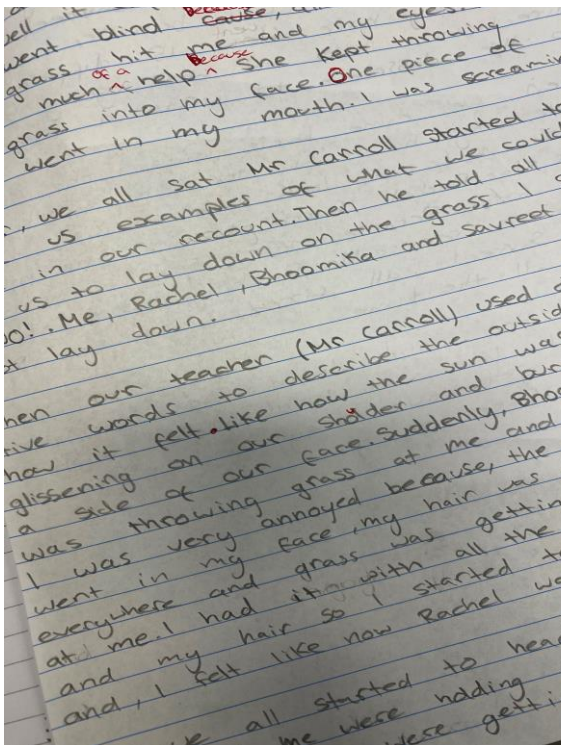 well it
went blind cause, Because
grass hit me and my eyes.
much of a help Because she kept throwing
grass into my face. One piece of
went in my mouth. I was screamin
, we all sat Mr Carroll started to
us examples of what we could
in our recount. Then he told all
us to lay down on the grass I
o!. Me, Rachel, Bhoomika and Savreet
t lay down.
hen our teacher (Mr Carroll) used
tive words to describe the outsid
how it felt. Like how the sun was
glissening on our sholder and bur
a side of our face. Suddenly, Bhoo
was throwing grass at me and
I was very annoyed because, the
went in my face, my hair was
everywhere and grass was gettin
at me. I had it with all the
and my hair so I started t
and, I felt like now Rachel we
e all started to hea
me were hiding
were getti